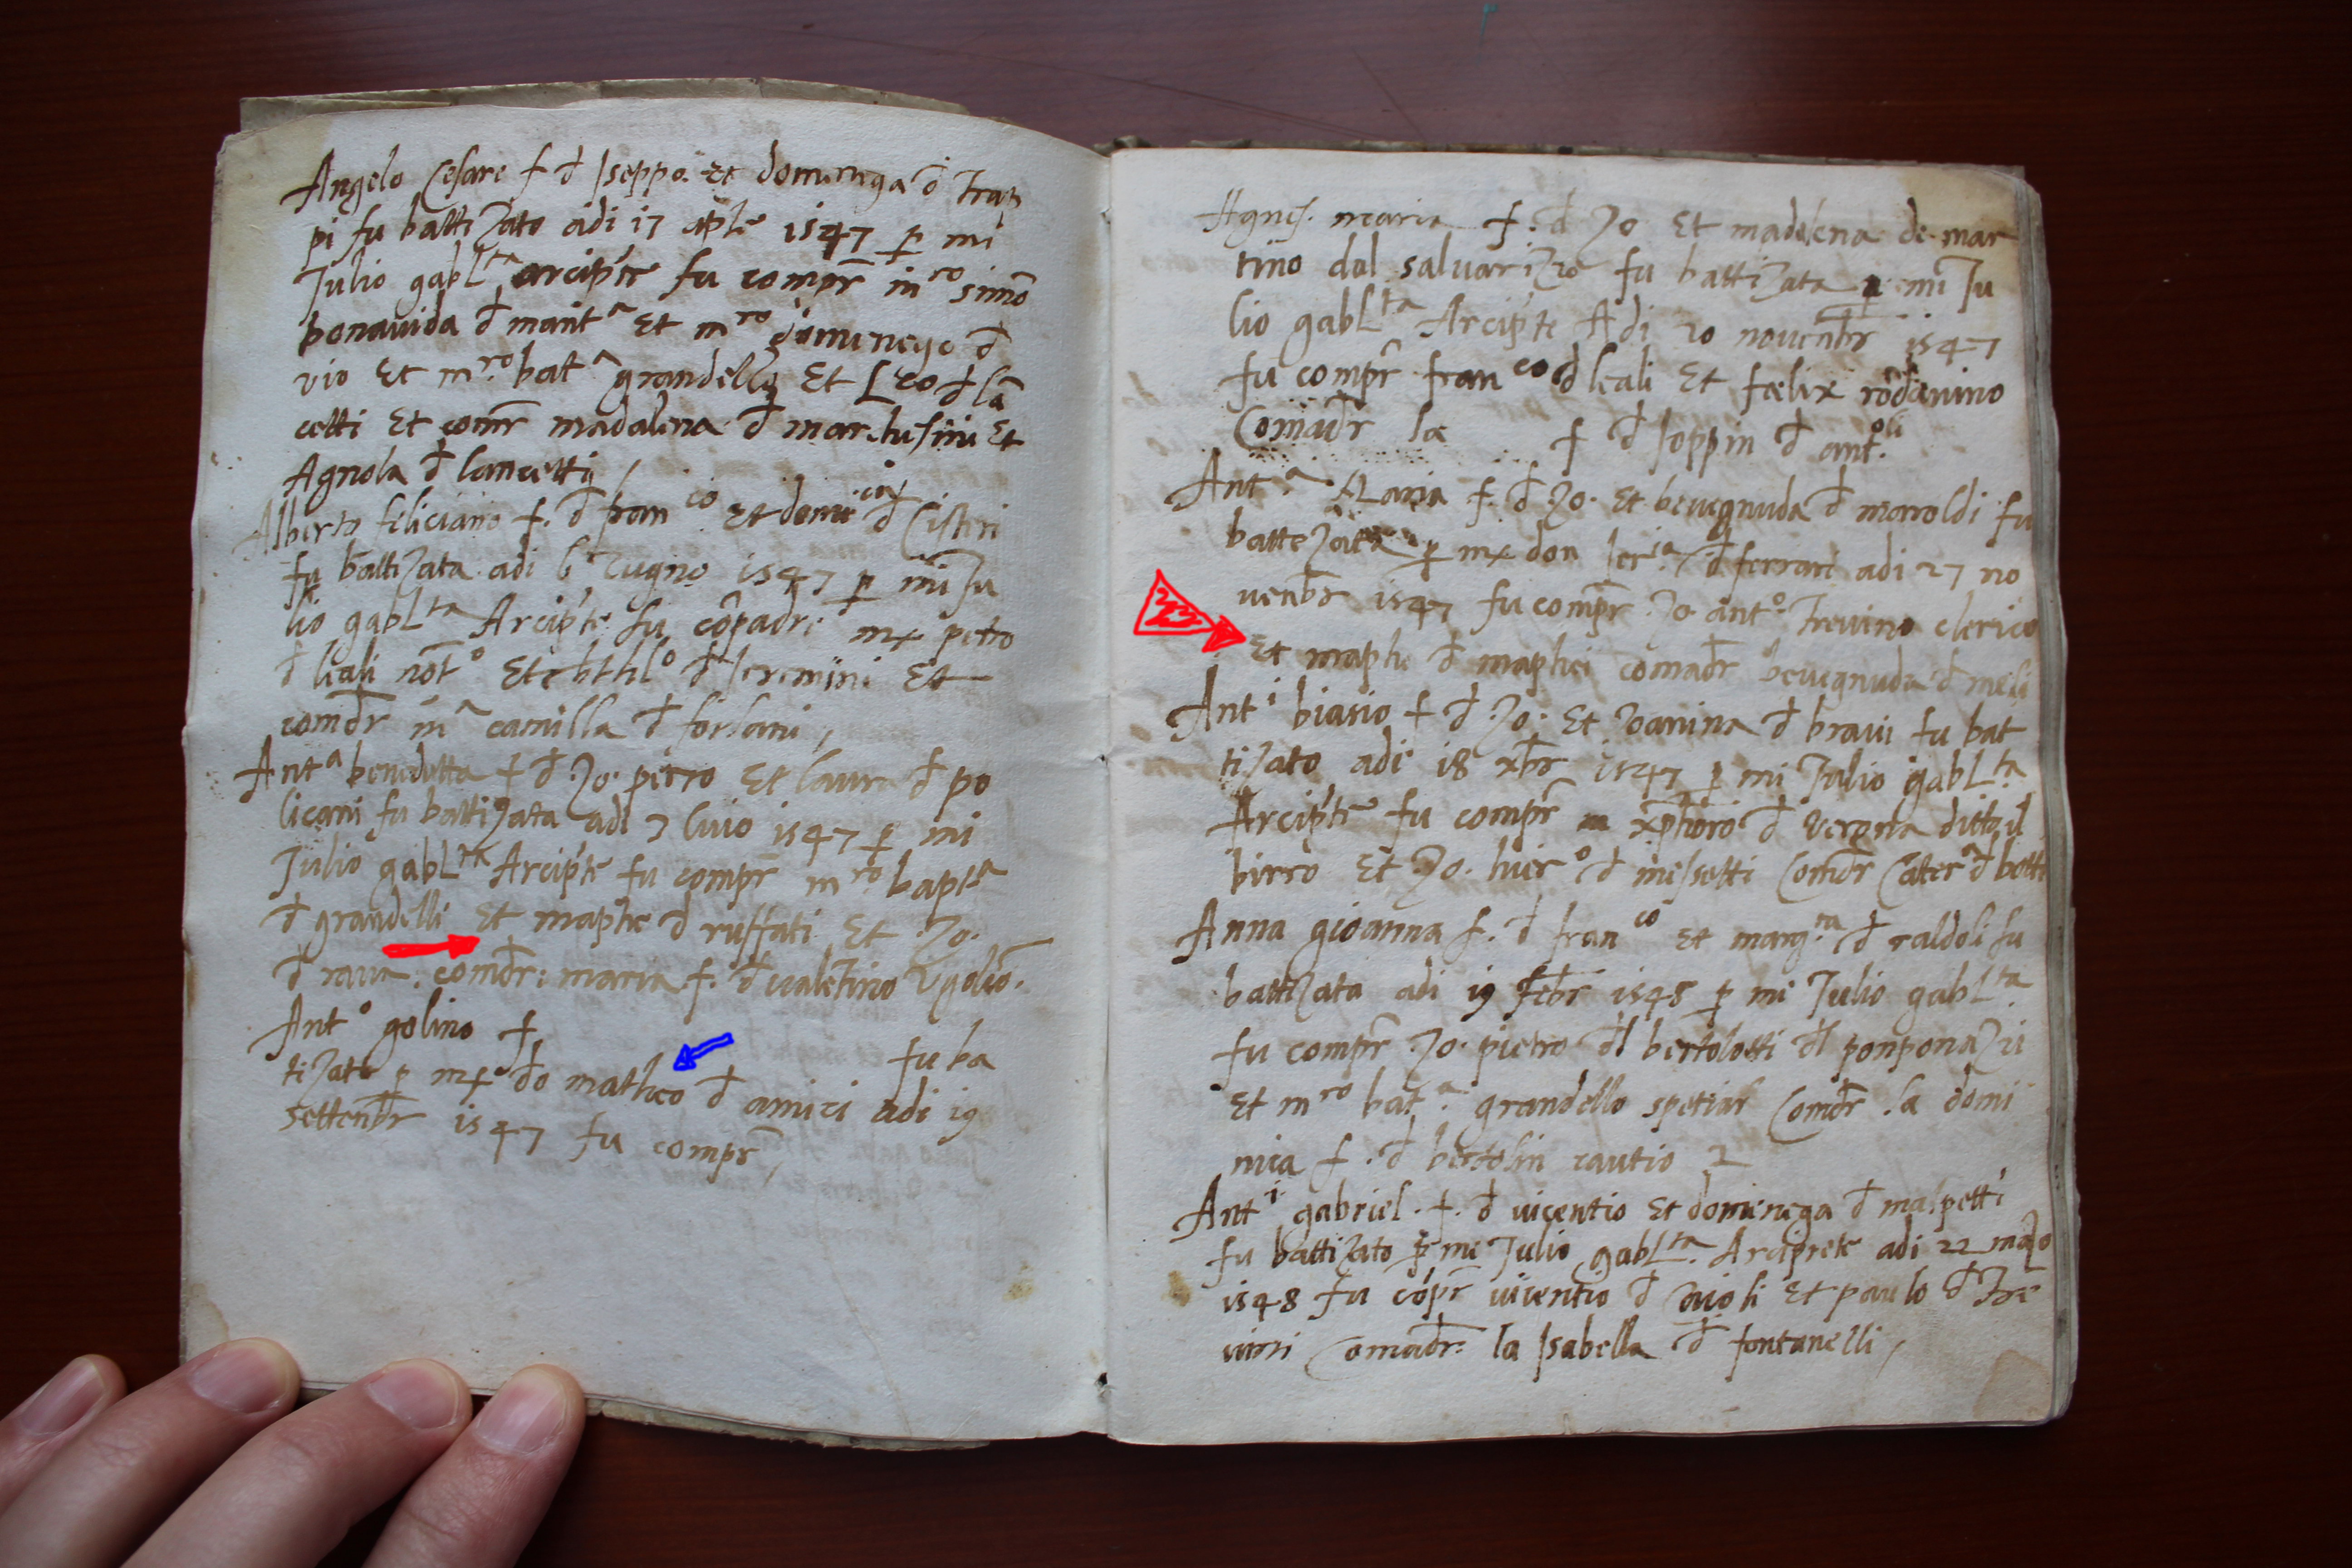 Angelo Cesare f d Iseppo. et domenega d Trap
pi fu battizato adi 17 aple 1547 p mi
Julio gabl.ta arcipte fu compr m.ro simo
bonauida d mant.a Et m.ro domenego d
vio Et m.ro bat.a grandello Et Leo d la
cetti Et comr madalena d marchesini Et
Agnola d lancetti /
Alberto feliciano f. d fran.co et domi.ca d Cistri
fu battizata adi Zugno 1547 p mi Ju
lio gabl.ta Arcipte fu copadre petro
d leali not.o Et d Et
comdr m.a camilla d forlani,
Ant.a benedetta f d Zo. petro Et laura d po
licani fu battizata adi 7 luio 1547 p mi
Julio gabl.ta Arcipte fu compr m.ro bapt.a
d grandelli Et maphe d ruffati Et Zo.
d raua. comdr: maria f. d ualetino
Ant.o golino f.
fu ba
tizato p do matheo d amici adi 19
settenbr 1547 fu compr,
Agnes. maria f. d Zo Et madelena de mar
tino dal fu battizata p mi Ju
lio gabl.ta Arcipte Adi 20 nouenbr 1547
fu compr fran.co d leali Et foelix rodanino
Comadr la f d Ioppin d ant.
Ant.a Maria f. d Zo. Et beuegnuda d maroldi fu
battezata p don Ier.a d ferrari adi 27 no
uenbr 1547 fu compr Zo ant.o Treuino clerico
Et maphe d maphei comadr beuegnuda d meli
Ant.i biasio f d Zo. Et Zoanina d braui fu bat
tizato adi 18 xbr 1547 p mi Julio gabl.ta
Arcipte fu compr d Verona ditto il
birro Et Zo. hier.o d messetti Comdr Cater.a d bott
Anna gioanna f. d fran.co Et marg.ta d raldoli fu
battizata adi 19 Febr 1548 p mi Julio gabl.ta
fu compr Zo. pietro dl bertolotti dl ponponazzi
Et m.ro bat.a grandello spetiar Comdr la domi
nica f. d bertolin rautio
Ant.i gabriel. f. d uicentio Et domenega d malpetti
fu battizato p me Julio gabl.ta Arciprete adi 22 mazo
1548 fu copr uicentio d Et paulo d Tre
uini Comadr: la Isabella d fontanelli,